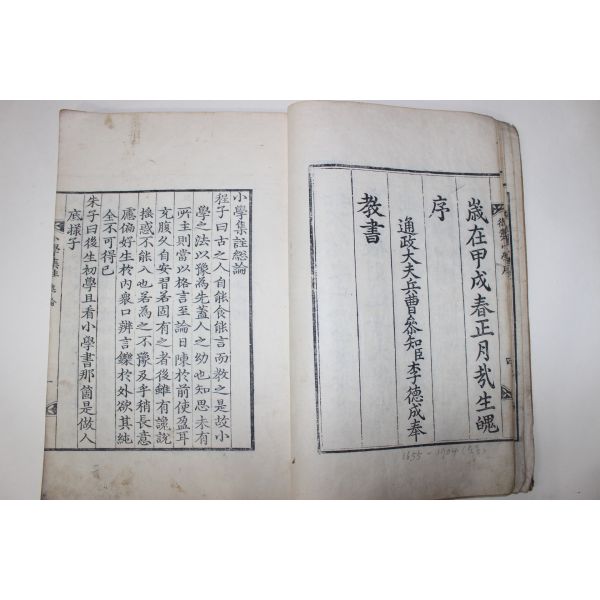 歲在甲戌春正月哉生魄
序
通政大夫兵曹參知臣李德成奉
教書
1655-1704 (숙종)
小學集註總論
程子曰古之人自能食能言而教之是故小
學之法以豫爲先蓋人之幼也知思未有
所主則當以格言至論日陳於前使盈耳
充腹久自安習若固有之者後雖有讒說
搖惑不能入也若爲之不豫及乎稍長意
慮偏好生於內衆口辨言鑠於外欲其純
全不可得已
朱子曰後生初學且看小學書那箇是做人
底樣子